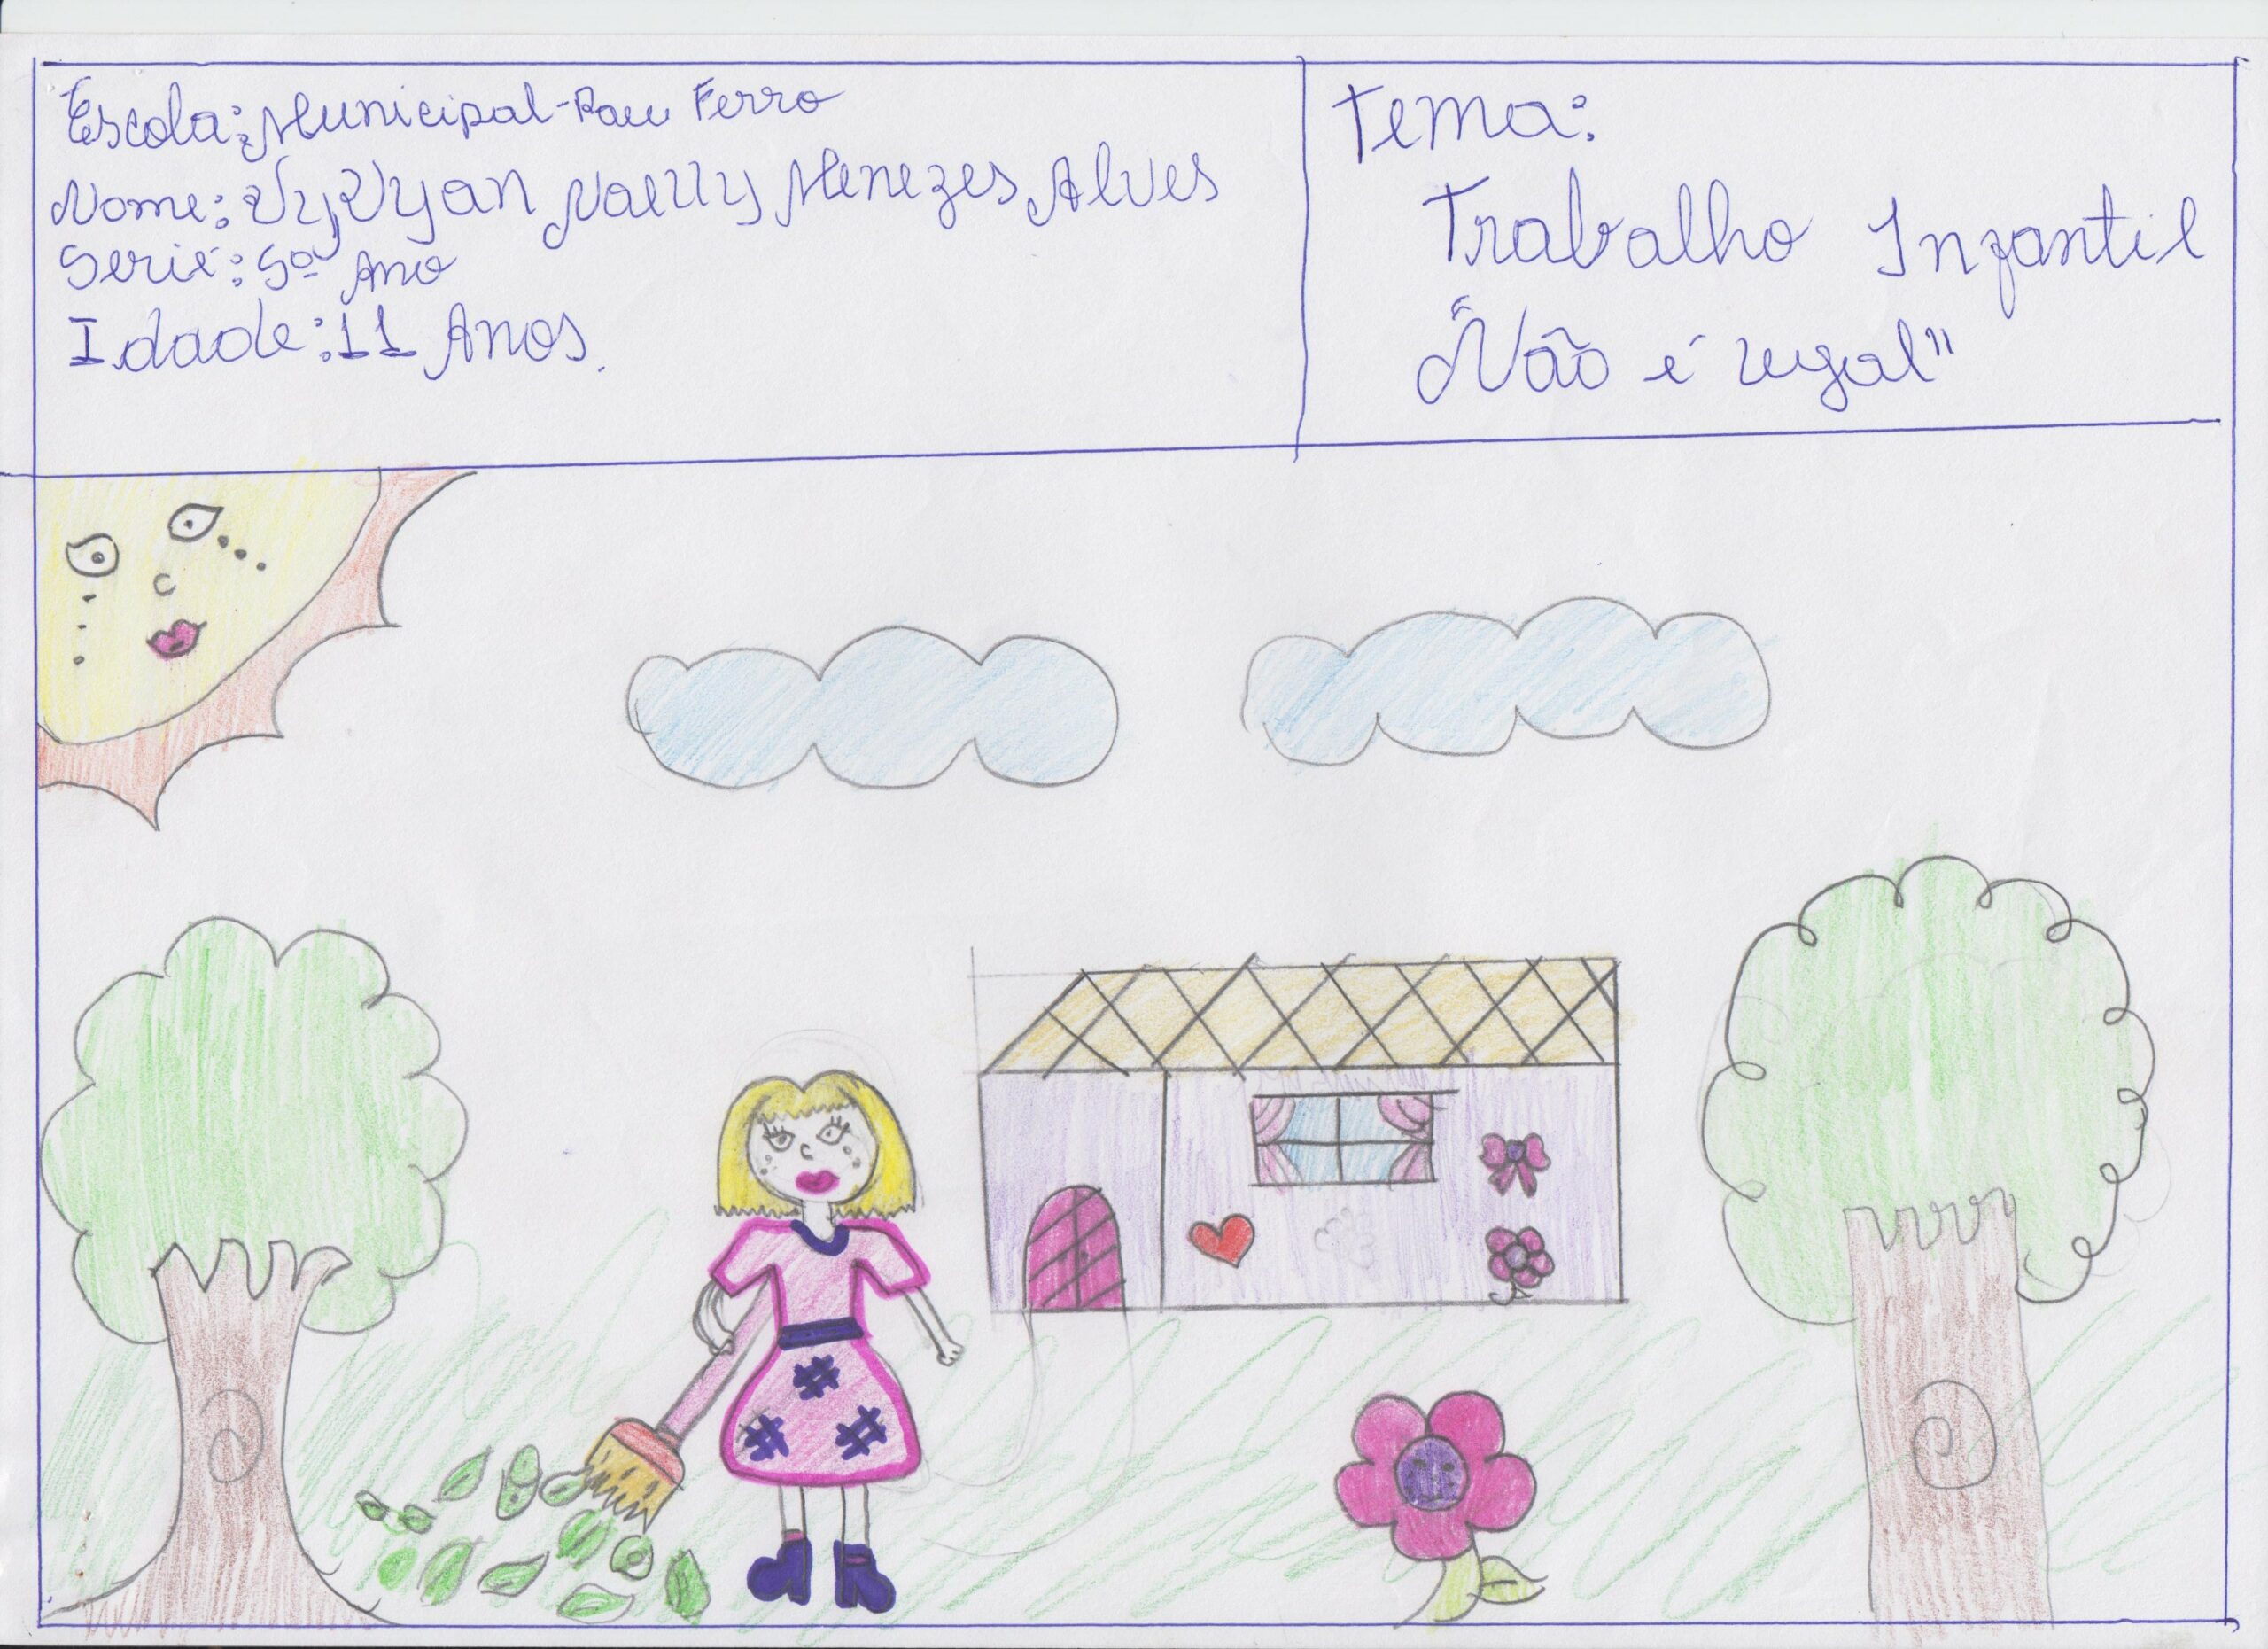 Escola: Municipal-Pau Ferro
Nome: Vyvyan Menezes Alves
Serié: 5º Ano
Idade: 11 Anos.
Tema:
Trabalho Infantil
"Não é legal"